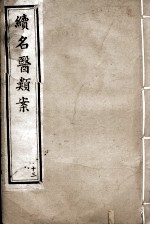 續名醫類案
十三